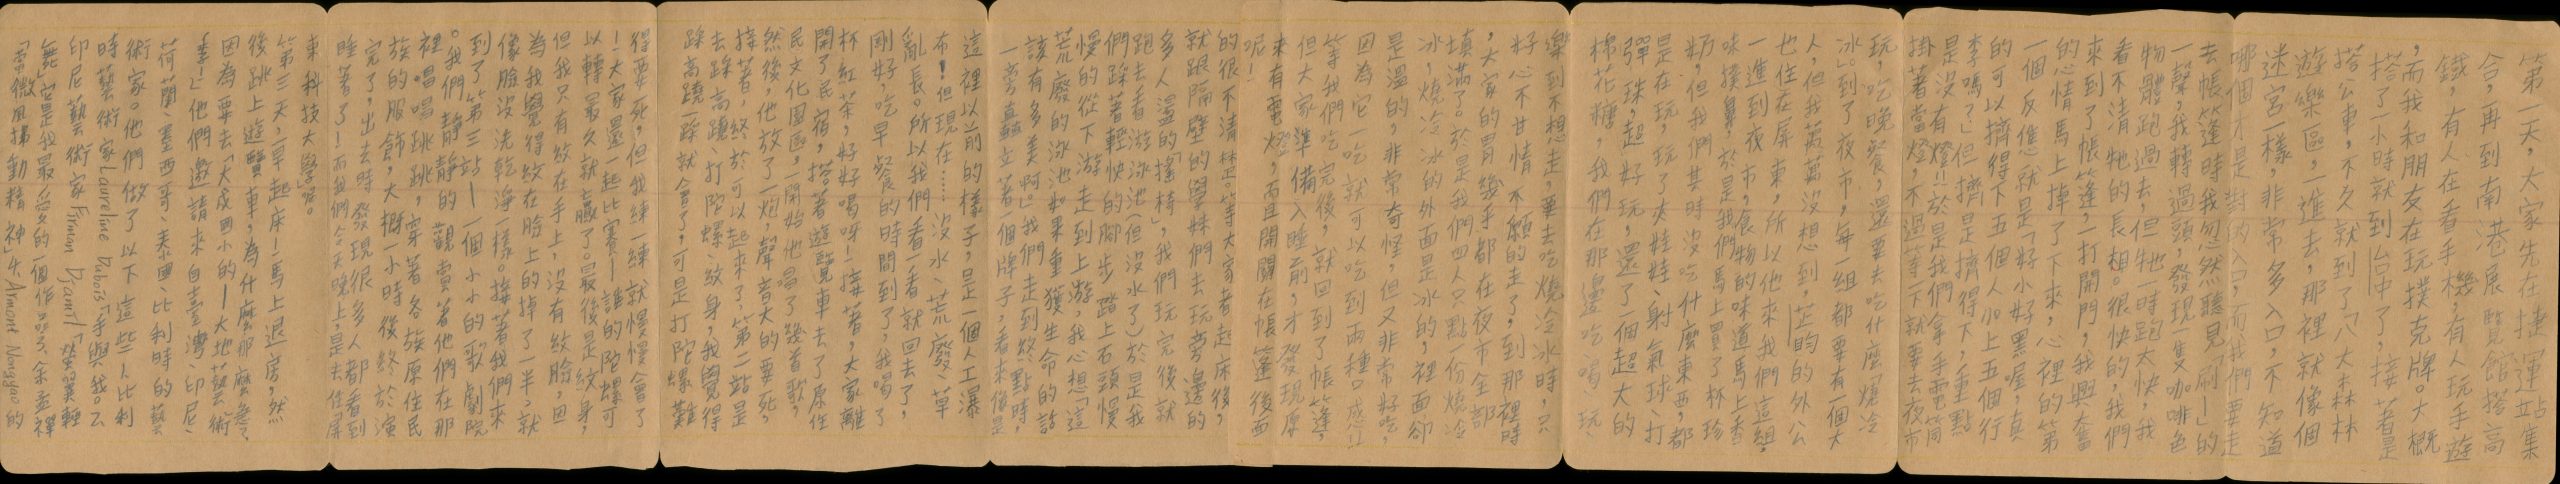 第一天,大家先在捷運站集
合,再到南港展覽館搭高
鐵,有人在看手機,有人玩手遊
,而我和朋友在玩撲克牌。大概
搭了一小時就到台中了,接著是
搭公車,不久就到了「八大森林
遊樂區」,一進去,那裡就像個
迷宮一樣,非常多入口,不知道
哪個才是對的入口,而我們要走
去帳篷時我忽然聽見「刷—」的
一聲,我轉過頭,發現一隻咖啡色
物體跑過去,但牠一時跑太快,我
看不清牠的長相。很快的,我們
來到了帳篷,一打開門,我興奮
的心情馬上掉了下來,心裡的第
一個反應就是「好小好黑喔,真
的可以擠得下五個人加上五個行
李嗎?」但擠是擠得下,重點
是沒有燈!!於是我們拿手電筒
掛著當燈,不過等一下就要去夜市
玩,吃晚餐,還要去吃什麼燒冷
冰。到了夜市,每一組都要有一個大
人,但我萬萬沒想到,芷昀的外公
也住在屏東,所以他來我們這組,
一進到夜市,食物的味道馬上香
味撲鼻,於是我們馬上買了杯珍
奶,但我們其時沒吃什麼東西,都
是在玩,玩了夾娃娃、射氣球、打
彈珠,超好玩,還了一個超大的
棉花糖,我們在那邊吃、喝、玩、
樂到不想走,要去吃燒冷冰時,只
好心不甘情不願的走了,到那裡時
,大家的胃幾乎都在夜市全部
填滿了。於是我們四人只點一份燒冷
冰,燒冷冰的外面是冰的,裡面卻
是溫的,非常奇怪,但又非常好吃,
因為它一吃就可以吃到兩種口感!!
等我們吃完後,就回到了帳篷,
但大家準備入睡前,才發現原
來有電燈,而且開關在帳篷後面
呢!
的很不清楚。等大家者起床後,
就跟隔壁的學妹們去玩旁邊的
多人盪的「搖椅」,我們玩完後就
跑去看游泳池(但沒水了)於是我
們踩著輕快的腳步踏上石頭慢
慢的從下游走到上游,我心想「這
荒廢的泳池如果重獲生命的話
該有多美啊。」我們走到終點時,
一旁矗立著一個牌子,看來像是
這裡以前的樣子,是一個人工瀑
布!但現在……沒水、荒廢、草
亂長。所以我們看一看就回去了,
剛好,吃早餐的時間到了,我喝了
杯紅茶,好好喝呀!接著,大家離
開了民宿,搭著遊覽車去了原住
民文化園區,一開始他唱了幾首歌,
然後,他放了一炮,聲音大的要死,
接著,終於可以起來了,第二站是
去踩高蹺、打陀螺、紋身,我覺得
踩高蹺一踩就會了,可是打陀螺難
得要死,但我練一練就慢慢會了
!大家還一起比賽—誰的陀螺可
以轉最久就贏了。最後是紋身,
但我只有紋在手上,沒有紋臉,因
為我覺得紋在臉上的掉了一半、就
像臉沒洗乾淨一樣。接著我們來
到了第三站—一個小小的歌劇院
。我們靜靜的觀賞著他們在那
裡唱唱跳跳,穿著各族原住民
族的服飾,大概一小時後終於演
完了,出去時發現很多人都看到
睡著了!而我們今天晚上,是去住屏
東科技大學喔。
第三天,一早起床!馬上退房,然
後跳上遊覽車,為什麼那麼急,
因為要去「大成國小的—大地藝術
季!」他們邀請來自臺灣、印尼、
荷蘭、墨西哥、泰國、比利時的藝
術家。他們做了以下這些人比利
時藝術家Laureline Dubois「手與我。」
印尼藝術家Firman Djamil「蟬翼輕
舞」它是我最忘久的一個作品了、余孟禪
「當微風拂動精神」先Armont Nongdao的